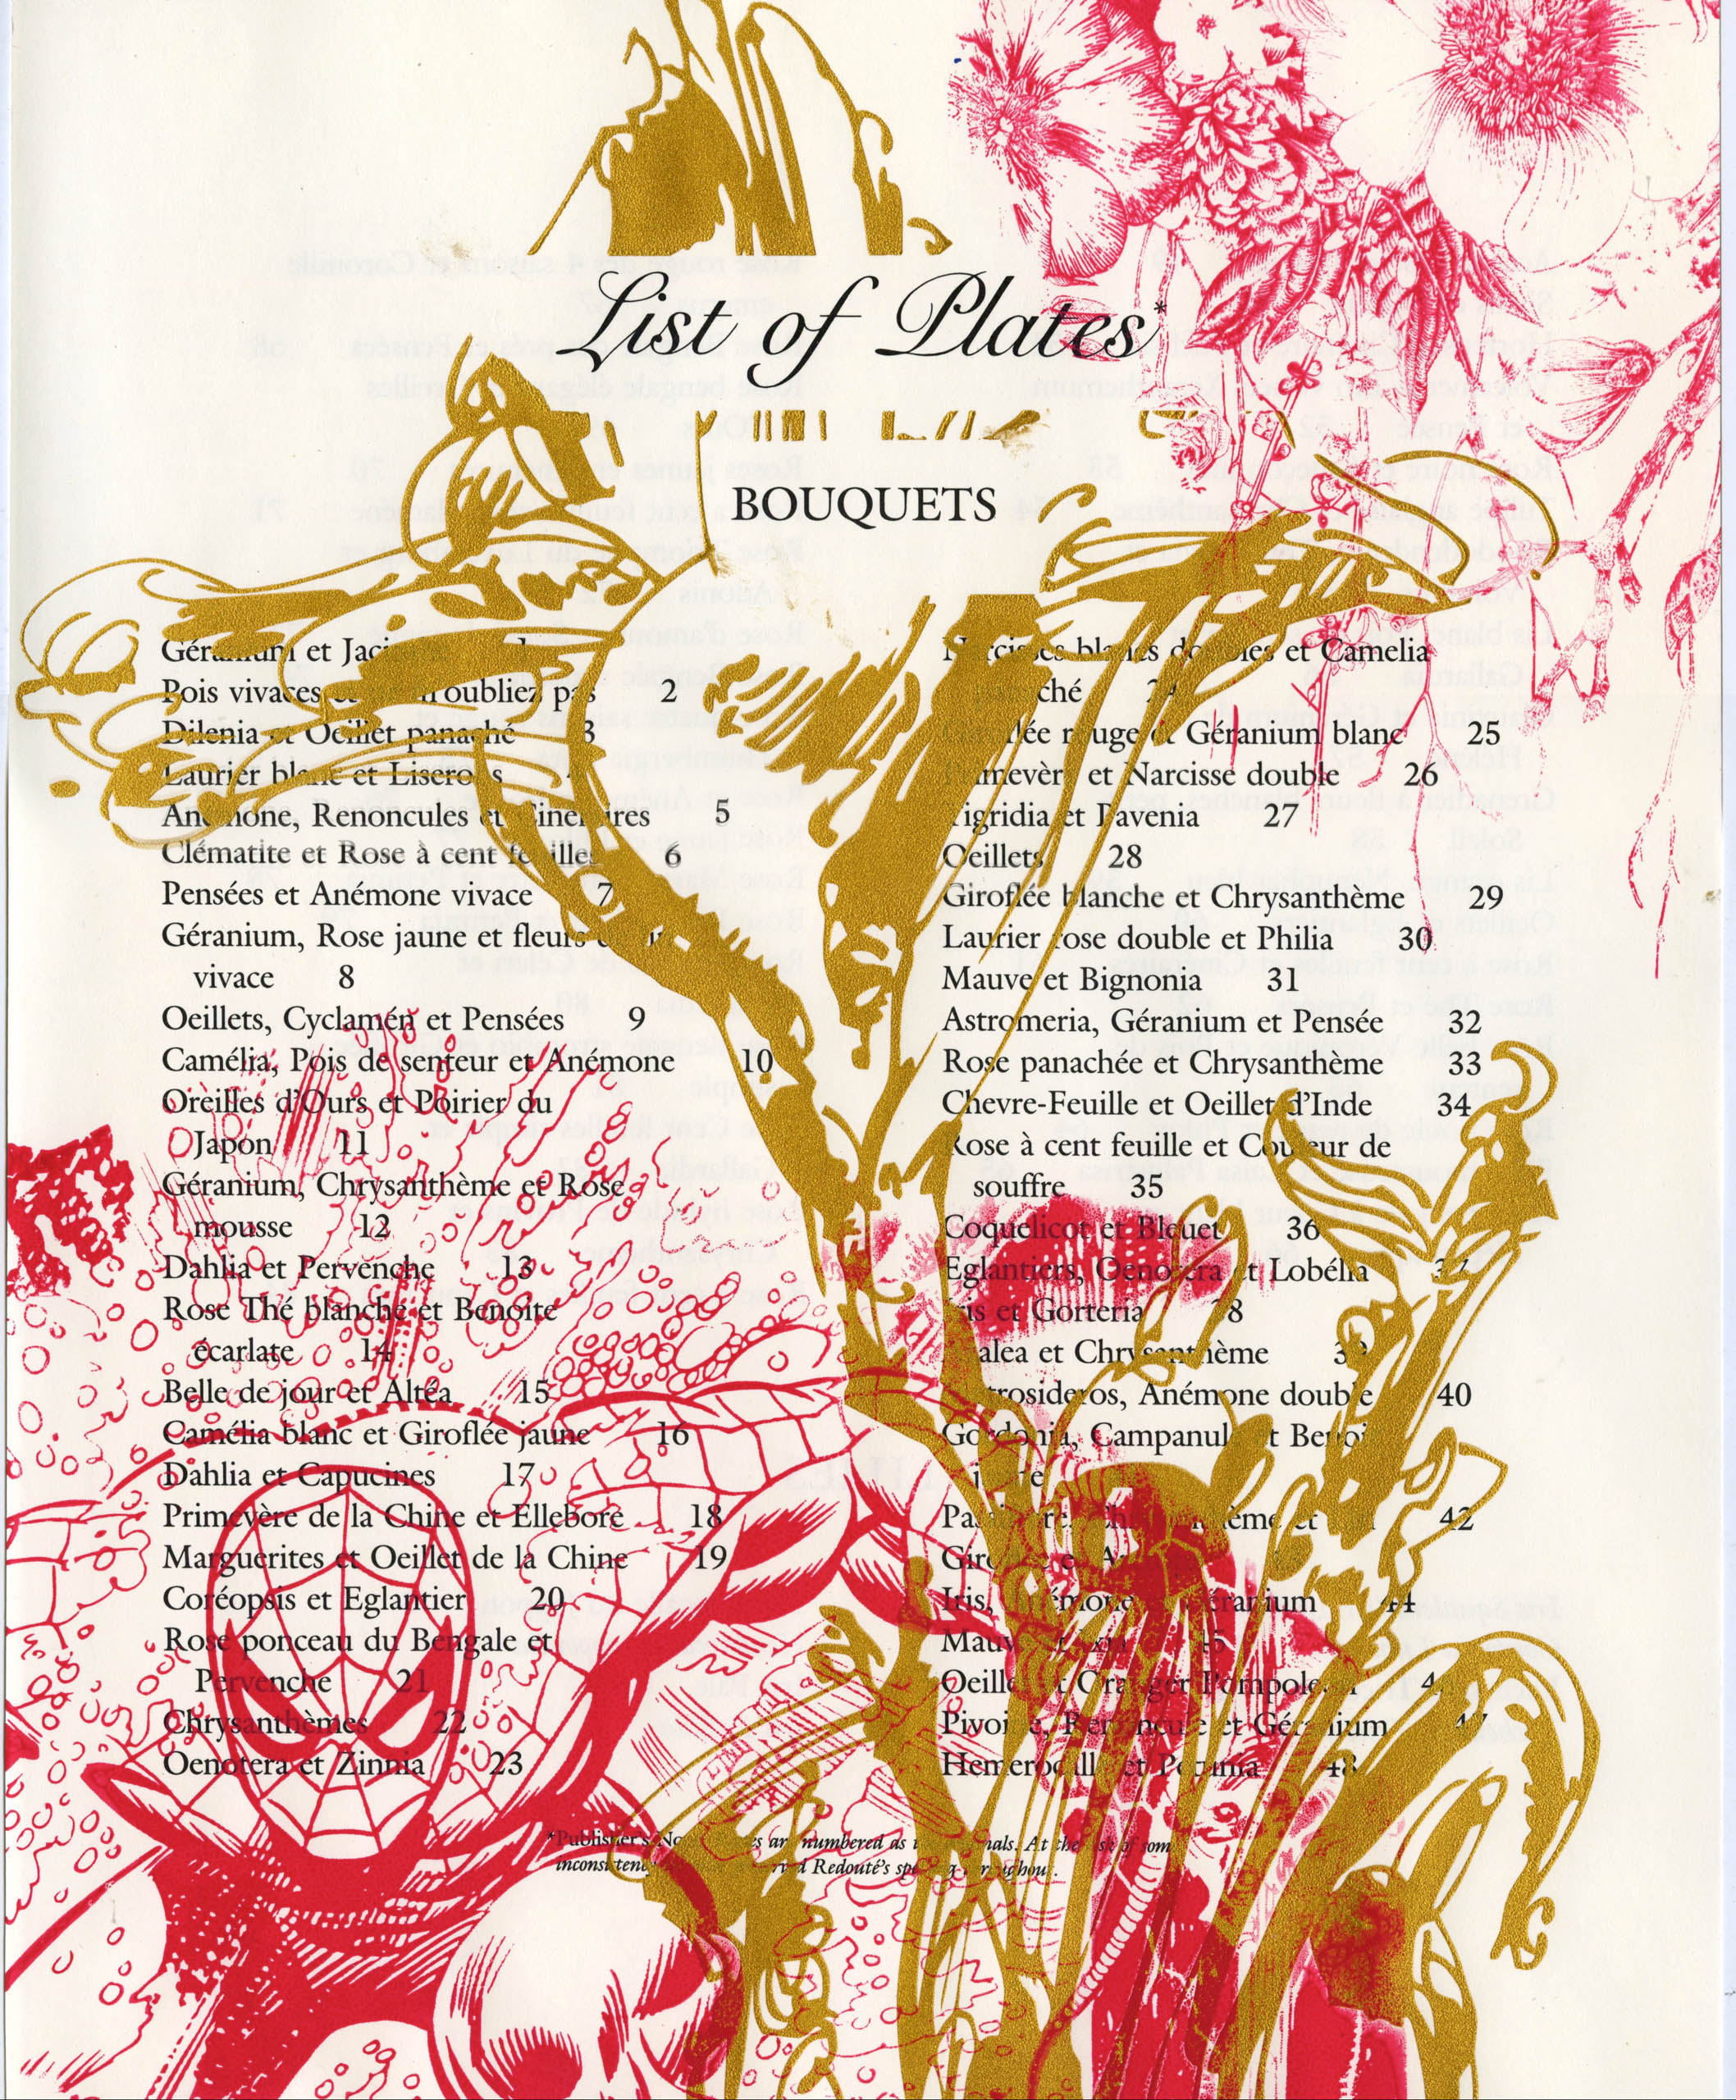 List of Plates*
BOUQUETS
Géranium et
Pois vivaces oubliez pas 2
Dilenia et Oeillet panaché 3
Laurier blanc et Liserons 4
Anémone, Renoncules et Cineraires 5
Clématite et Rose à cent feuilles 6
Pensées et Anémone vivace 7
Géranium, Rose jaune et fleurs
vivace 8
Oeillets, Cyclamen et Pensées 9
Camélia, Pois de senteur et Anémone 10
Oreilles d'Ours et Poirier du
Japon 11
Géranium, Chrysanthème et Rose
mousse 12
Dahlia et Pervenche 13
Rose Thé blanche et Benoite
écarlate 14
Belle de jour et Altéa 15
Camélia blanc et Giroflée jaune 16
Dahlia et Capucines 17
Primevère de la Chine et Ellebore 18
Marguerites et Oeillet de la Chine 19
Coréopsis et Eglantier 20
Rose ponceau du Bengale et
Pervenche 21
Chrysanthèmes 22
Oenotera et Zinnia 23
Narcisses blancs doubles et Camelia
24
rouge et Géranium blanc 25
Primevère et Narcisse double 26
Tigridia et Pavenia 27
Oeillets 28
Giroflée blanche et Chrysanthème 29
Laurier rose double et Philia 30
Mauve et Bignonia 31
Astromeria, Géranium et Pensée 32
Rose panachée et Chrysanthème 33
Chevre-Feuille et Oeillet d'Inde 34
Rose à cent feuille et Couleur de
souffre 35
Coquelicot et Bleuet 36
Eglantiers, Oenotera et Lobélia 37
Iris et Gorteria 38
Azalea et Chrysanthème 39
Anémone double 40
Gordonia, Campanule et
et 42
et
Iris, Anémone Géranium 44
Mauve
Oeillet et Oranger Pompoleon
Pivoine, Renoncule et Géranium 47
Hemerocalle et Petunia 48
*Publisher's are numbered as At the risk of some
Redouté's throughout.